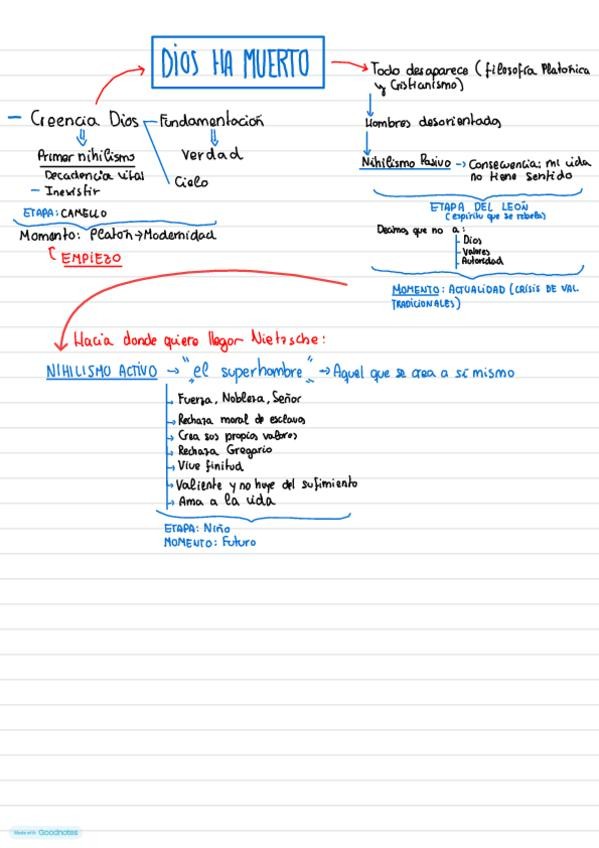 DIOS HA MUERTO
- Creencia Dios - Fundamentación
Primer nihilismo
Decadencia vital
- Inexistir
Verdad
Cielo
ETAPA: CAMELLO
Momento: Platón → Modernidad
EMPIEZO
→ Todo desaparece (filosofía Platónica
y Cristianismo)
Hombres desorientados
Nihilismo Pasivo → Consecuencia: mi vida
no tiene sentido
ETAPA DEL LEÓN
(espíritu que se rebela)
Decimos que no a:
- Dios
- Valores
- Autoridad
MOMENTO: ACTUALIDAD (CRISIS DE VAL.
TRADICIONALES)
Hacia donde quiere llegar Nietzsche:
NIHILISMO ACTIVO → "el superhombre" → Aquel que se crea a sí mismo
→ Fuerza, Nobleza, Señor
→ Rechaza moral de esclavos
→ Crea sus propios valores
→ Rechaza Gregario
→ Vive finitud
→ Valiente y no huye del sufrimiento
→ Ama a la vida
ETAPA: Niño
MOMENTO: Futuro
Made with Goodnotes